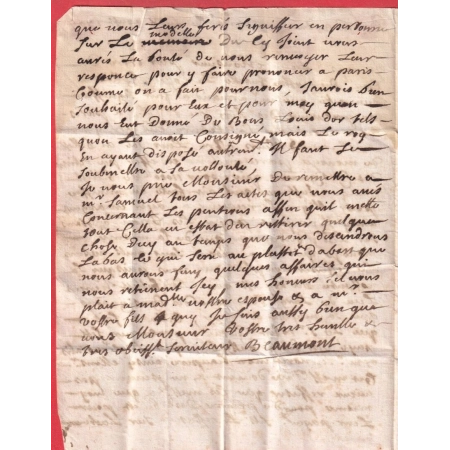 que vous Leur fere signiffier en personne
Sur Le modelle Du Cy Joint vous
aurés La bonté de nous renvoyer Leur
responce pour y faire prononcer a paris
Comme on a fait pour nous, Jaurois bien
souhaité pour Lux et pour moy quon
nous Eut Donné De Bons Louis dor tels
quon Les avoit Consigné mais Le roy
En ayant disposé autremt. Il faut Se
soubmettre a sa vollonté
Je vous prie Monsieur de remettre a
mr Samuel tous Les actes que vous avés
Concernant Les pantions affin quil mette
tout Cella en estat den rettirer quelque
chose Dicy au temps que nous dissendrons
Labas Ce qui sera au plustost dabort que
nous aurons finy quelques affaires qui
nous retienent Icy mes honeurs sil vous
plait a madlle vostre espouse & a mr
vostre fils & quy Je suis aussy bien que
vous Monsieur Vostre tres humble &
tres obeisst. serviteur Beaumont